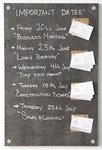 "IMPORTANT DATES"
→ FRIDAY 20th JUNE
"BUSINESS MEETING"
→ MONDAY 23rd JUNE
LUNA'S BIRTHDAY
→ WEDNESDAY 4th JULY
DAY
→ TUESDAY 10th JULY
CONSTRUCTION
→ THURSDAY 25th JULY
"PLANNING"